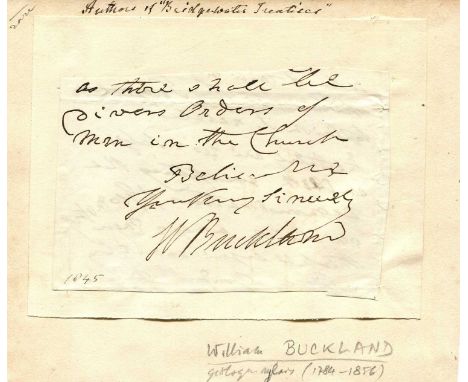 Authors of "Bridgewater Treatises"
as there shall be
divers Orders of
Men in the Church
Believe me
Yours very Sincerely
W Buckland
1845
William BUCKLAND
(1784-1856)